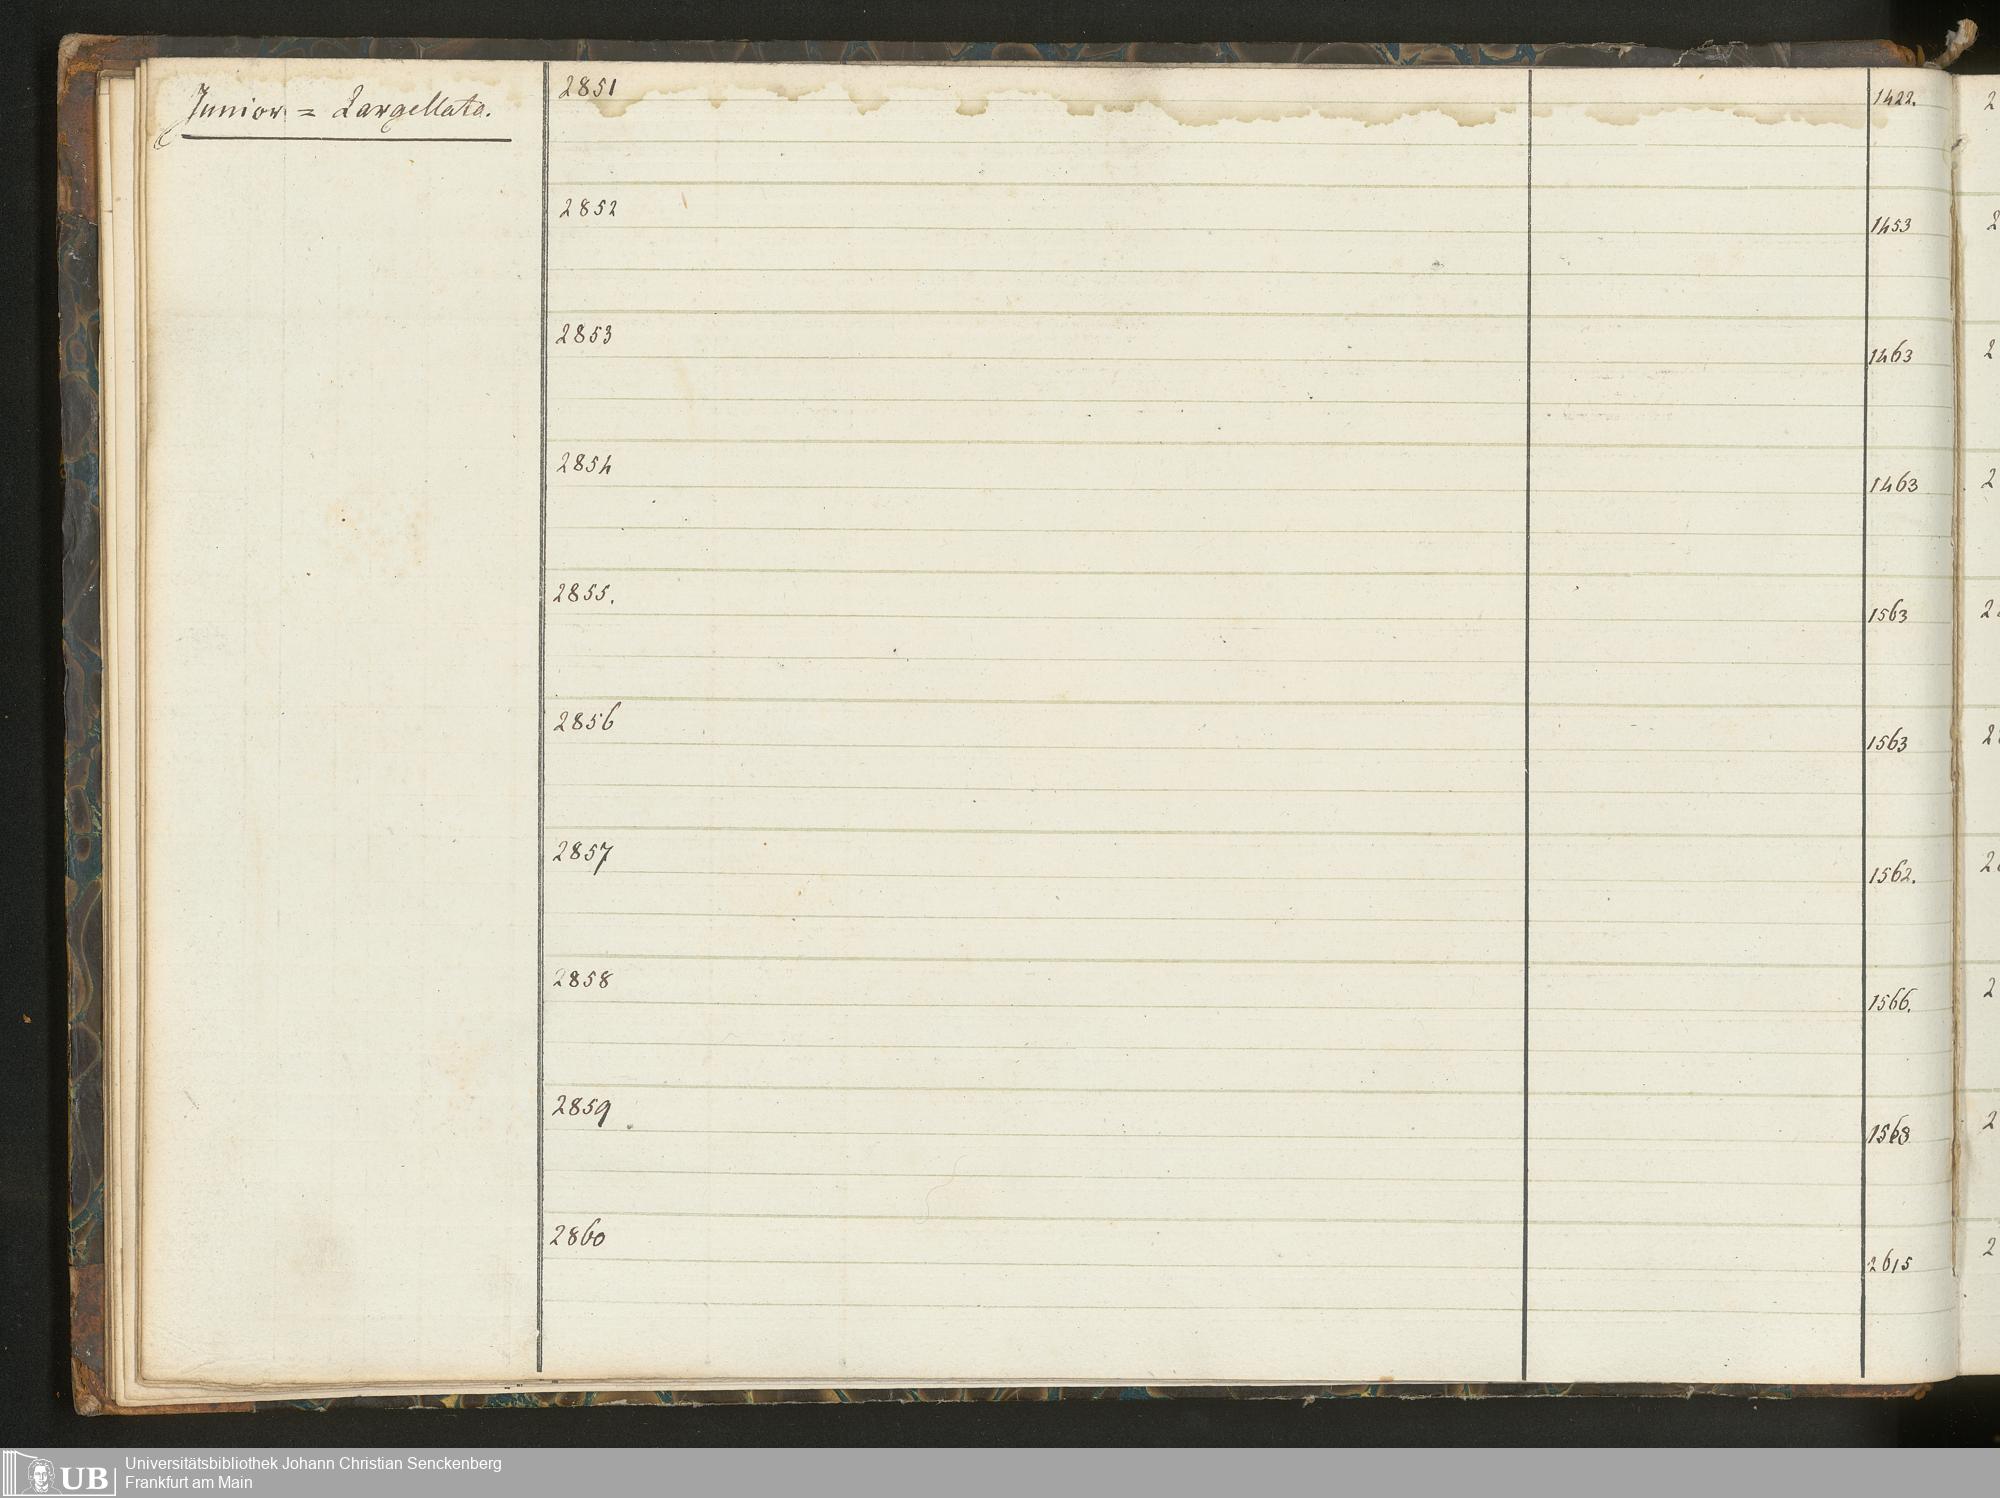 Junior = Largellata.
2851 1422.
2852 1453
2853 1463
2854 1463
2855. 1563
2856 1563
2857 1562.
2858 1566.
2859 1568
2860 2615
Universitätsbibliothek Johann Christian Senckenberg
UB Frankfurt am Main